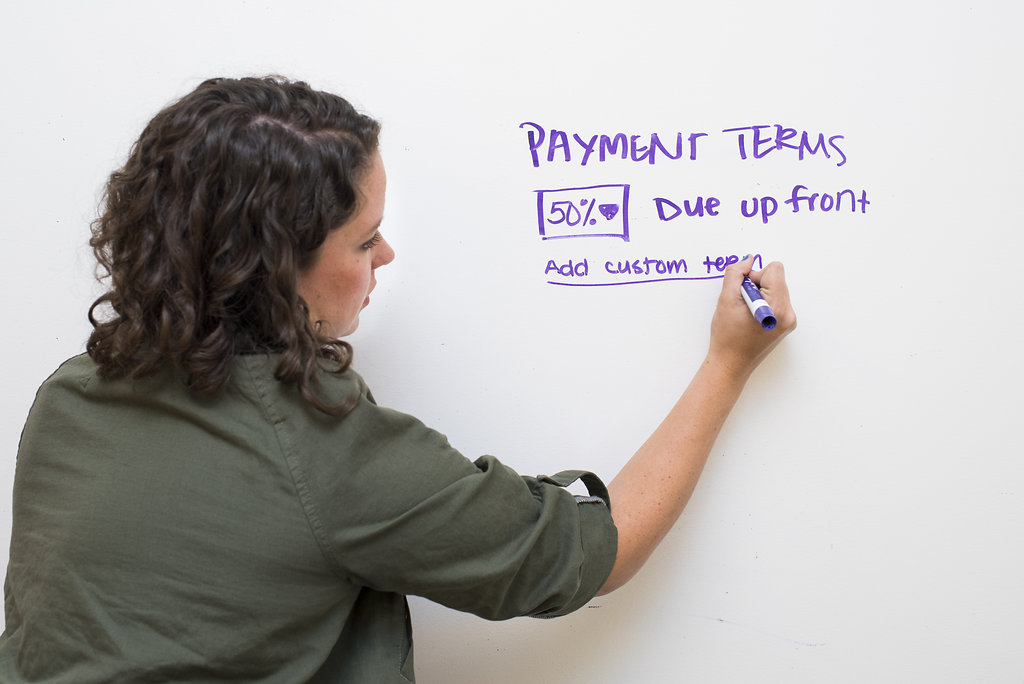 PAYMENT TERMS
50% Due upfront
Add custom term